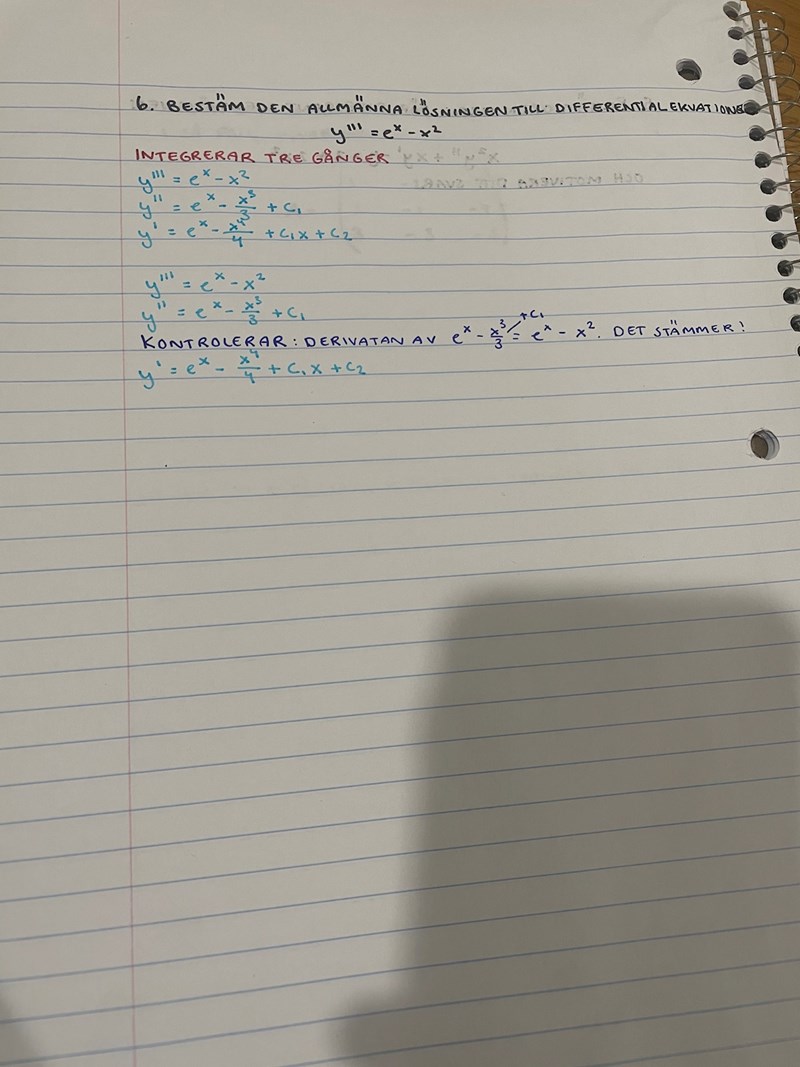 6. BESTÄM DEN ALLMÄNNA LÖSNINGEN TILL DIFFERENTIALEKVATIONE
y''' = eˣ - x²
INTEGRERAR TRE GÅNGER
y''' = eˣ - x²
y'' = eˣ - x³/3 + C₁
y' = eˣ - x⁴/4 + C₁x + C₂
y''' = eˣ - x²
y'' = eˣ - x³/3 + C₁
KONTROLERAR: DERIVATAN AV eˣ - x³/3 + C₁ = eˣ - x². DET STÄMMER!
y' = eˣ - x⁴/4 + C₁x + C₂